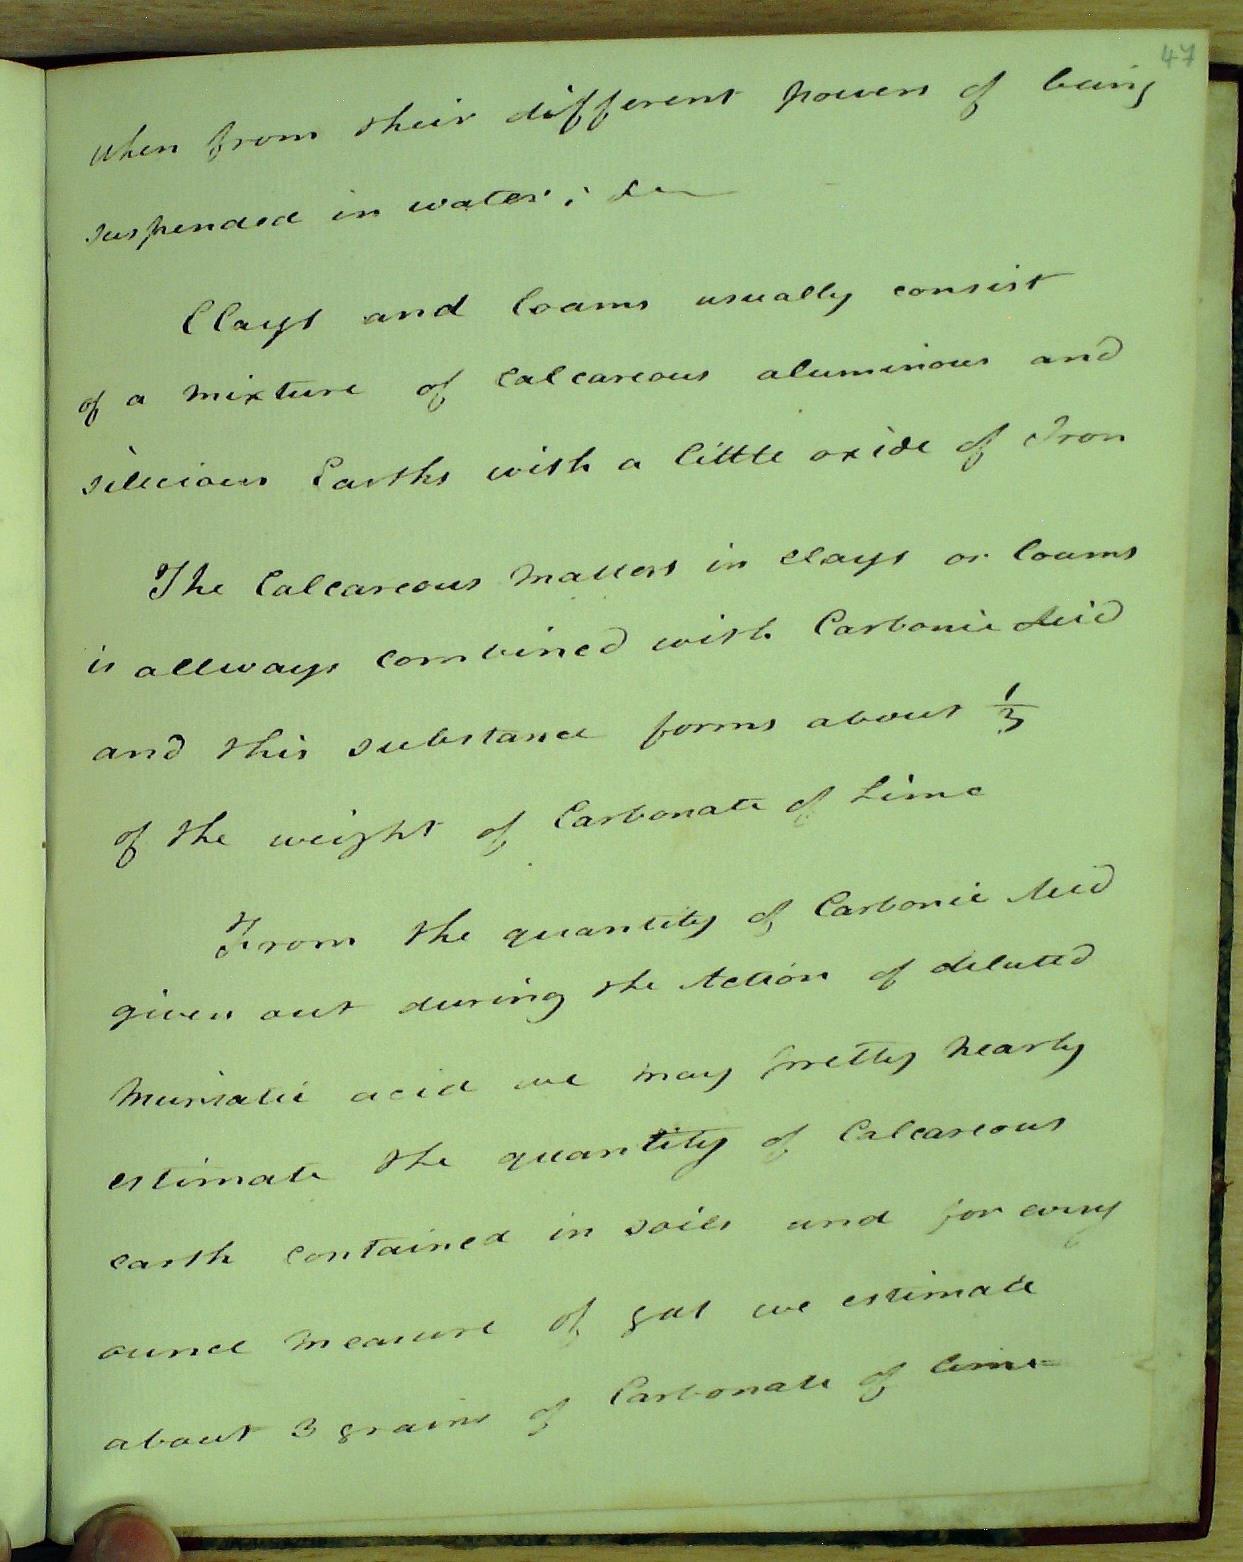 47
when from their different powers of being
suspended in water; &c
Clays and loams usually consist
of a mixture of Calcareous aluminous and
silicious Earths with a little oxide of Iron
The Calcareous matters in clays or loams
is allways combined with Carbonic Acid
and this substance forms about 1/3
of the weight of Carbonate of Lime
From the quantity of Carbonic Acid
given out during the Action of diluted
Muriatic acid we may pretty nearly
estimate the quantity of Calcareous
earth contained in soils and for every
ounce measure of gas we estimate
about 3 grains of Carbonate of lime